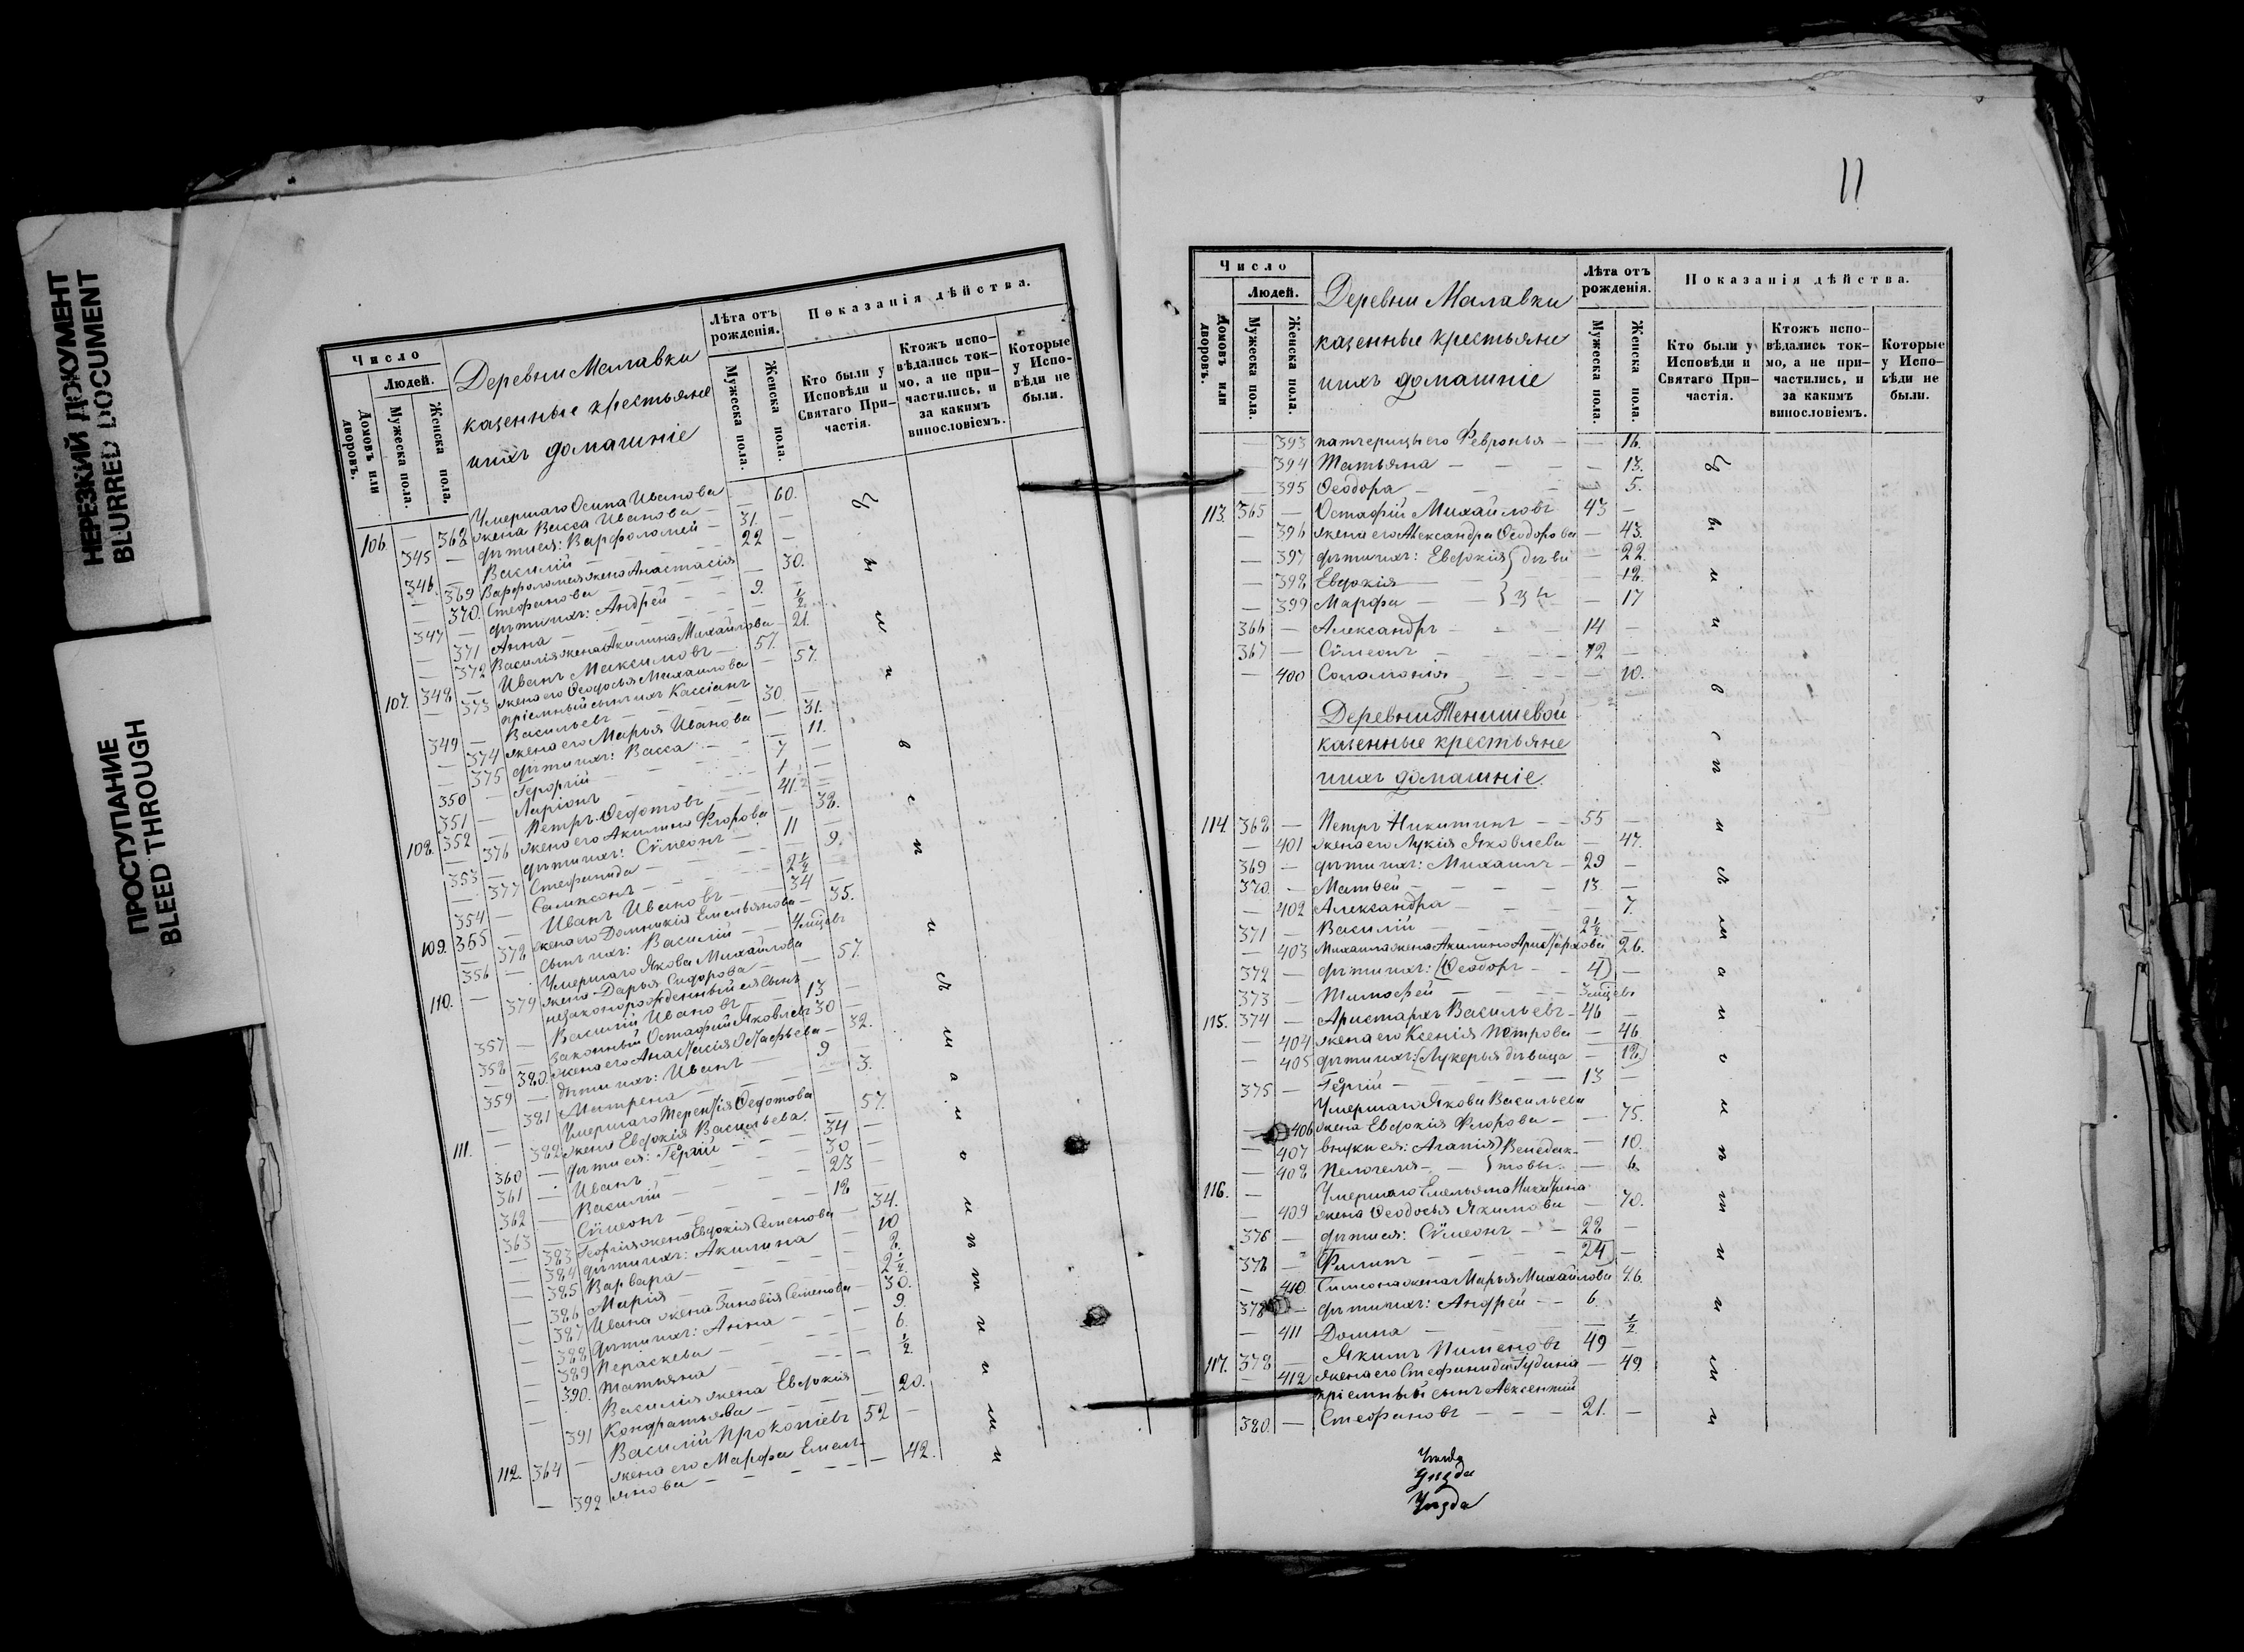 НЕРЕЗКИЙ ДОКУМЕНТ
BLURRED DOCUMENT
ПРОСТУПАНИЕ
BLEED THROUGH
Число
Людей.
Домовъ или дворовъ.
Мужеска пола.
Женска пола.
Деревни Малавки
казенные крестьяне
и ихъ домашніе
Лѣта отъ рожденія.
Мужеска пола.
Женска пола.
Показанія дѣйства.
Кто были у Исповѣди и Святаго Причастія.
Ктожъ исповѣдались токмо, а не причастились, и за какимъ винословіемъ.
Которые у Исповѣди не были.
Умершаго Осипа Иванова
106. — 368 жена Васса Иванова — — 60.
345 — дѣти ея: Варфоломей — 31. —
346. — Василій — 22 —
— 369 Варфоломея жена Анастасія
— 370. Стефанова — — 30.
347 — дѣти ихъ: Андрей — 9. —
— 371 Анна — — ½
— 372 Василія жена Акилина Михайлова — 21.
107. 348 — Иванъ Максимовъ — 57. —
— 373 жена его Ѳеодосья Михайлова — 57.
пріемный сынъ ихъ Кассіанъ
349 — Васильевъ — 30. —
— 374 жена его Марья Иванова — 31.
— 375 дѣти ихъ: Васса — — 11.
350 — Георгій — 7 —
351 — Ларіонъ — 1 —
108. 352 — Петръ Ѳедотовъ — 41. —
— 376 жена его Акилина Флорова — 38.
353 — дѣти ихъ: Сѵмеонъ — 11 —
— 377 Стефанида — — 9.
354 — Сампсонъ — 2½ —
109. 355 — Иванъ Ивановъ — 34 —
— 378 жена его Домникія Емельянова — 35.
356 — сынъ ихъ: Василій —
Умершаго Якова Михайлова
110. — 379 жена Дарья Сидорова — — 57.
незаконорожденный ея сынъ
357 — Василій Ивановъ — 13 —
358 — законный Остафій Яковлевъ 30 —
— 380. жена его Анастасія Остафьева — 32.
359 — дѣти ихъ: Иванъ — 9 —
— 381 Матрена — — 3.
Умершаго Терентія Ѳедотова
111. — 382 жена Евдокія Васильева. — 57.
360 — дѣти ея: Гёргій — 34 —
361 — Иванъ — 30 —
362 — Василій — 23 —
363 — Сѵмеонъ — 18 —
— 383 Георгія жена Евдокія Семенова — 34.
— 384 дѣти ихъ: Акилина — 10
— 385 Варвара — — 8.
— 386 Марія — — 2½.
— 387 Ивана жена Зиновія Семенова — 30.
— 388 дѣти ихъ: Анна — — 9.
— 389 Параскева — — 6.
— 390. Татьяна — — ½.
Василія жена Евдокія
— 391 Кондратьева — — 20.
112. 364 — Василій Прокопіевъ 52 —
жена его Марфа Емель-
— 392 янова — — 42.
Ч ы и и в с п и л м а н о и п т и и м и
11
Число
Людей.
Домовъ или дворовъ.
Мужеска пола.
Женска пола.
Деревни Малавки
казенные крестьяне
и ихъ домашніе
Лѣта отъ рожденія.
Мужеска пола.
Женска пола.
Показанія дѣйства.
Кто были у Исповѣди и Святаго Причастія.
Ктожъ исповѣдались токмо, а не причастились, и за какимъ винословіемъ.
Которые у Исповѣди не были.
— 393 патчерицы его Февронья — — 16.
— 394 Татьяна — — 13.
— 395 Ѳеодора — — 5.
113. 365 — Остафій Михайловъ 43 —
— 396 жена его Александра Ѳеодорова — 43.
— 397 дѣти ихъ: Евдокія — 22.
— 398 Евдокія — — 18.
— 399 Марфа — — 17
366 — Александръ — 14 —
367 — Сѵмеонъ — 12 —
— 400 Соломонія — — 10.
Деревни Тенишевой
казенные крестьяне
и ихъ домашніе.
114. 368 — Петръ Никитинъ — 55 —
— 401 жена его Лукія Яковлева — 47.
369 — дѣти ихъ: Михаилъ — 29 —
370. — Матвей — 13. —
— 402 Александра — — 7.
371 — Василій — 2½ —
— 403 Михаила жена Акилина Аристархова 26.
372 — дѣти ихъ: Ѳеодоръ — 4 —
373 — Тимофей —
115. 374 — Аристархъ Васильевъ — 46 —
— 404 жена его Ксенія Петрова — 46.
— 405 дѣти ихъ: Лукерья дѣвица — 18
375 — Гёргій — 13 —
Умершаго Якова Васильева
— 406 жена Евдокія Флорова — — 75.
— 407 внуки ея: Агапія } Венедик- — 10.
— 408 Пелагея — } товы. — 6.
116. — Умершаго Емельяна Никитина
— 409 жена Ѳеодосья Якимова — 70.
376 — дѣти ея: Сѵмеонъ — 28 —
Филипъ — 24 —
— 410. Симеона жена Марья Михайлова 26.
378 — дѣти ихъ: Андрей — 6. —
— 411 Домна — — ½
117. — Якимъ Пименовъ 49 —
— 412 жена его Стефанида — 49.
пріемный сынъ Авксентій
380. — Стефановъ — 21. —